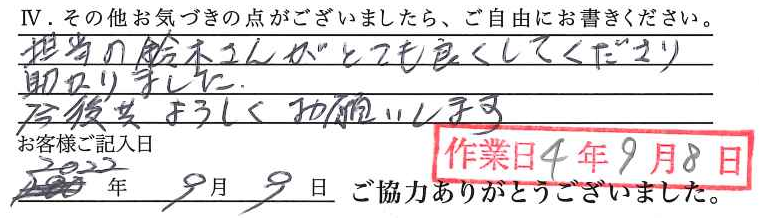 Ⅳ．その他お気づきの点がございましたら、ご自由にお書きください。
担当の鈴木さんがとても良くしてくださり
助かりました.
今後共よろしくお願いします
お客様ご記入日
作業日4年9月8日
2022年 9月 9日 ご協力ありがとうございました。